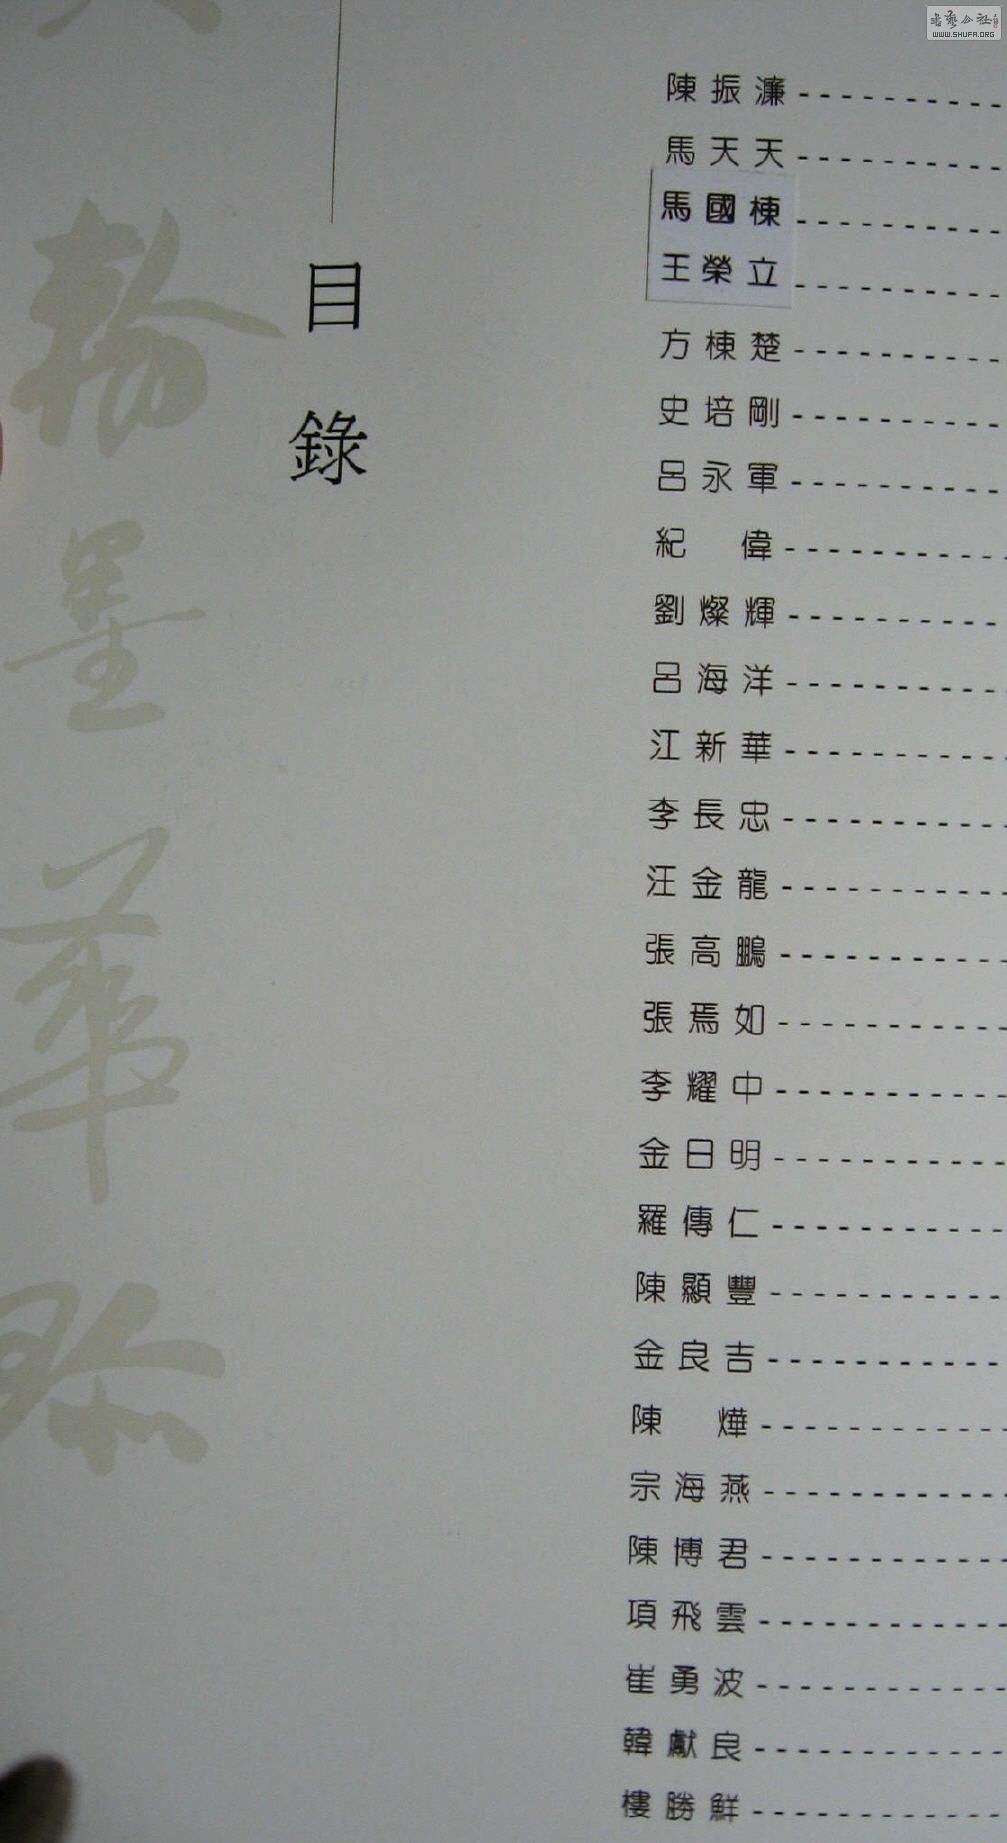 書藝公社
WWW.SHUFA.ORG
目錄
翰墨華
陳振濂
馬天天
馬國棟
王榮立
方棟楚
史培剛
呂永軍
紀偉
劉燦輝
呂海洋
江新華
李長忠
汪金龍
張高鵬
張焉如
李耀中
金日明
羅傳仁
陳顯豐
金良吉
陳燁
宗海燕
陳博君
項飛雲
崔勇波
韓獻良
樓勝鮮